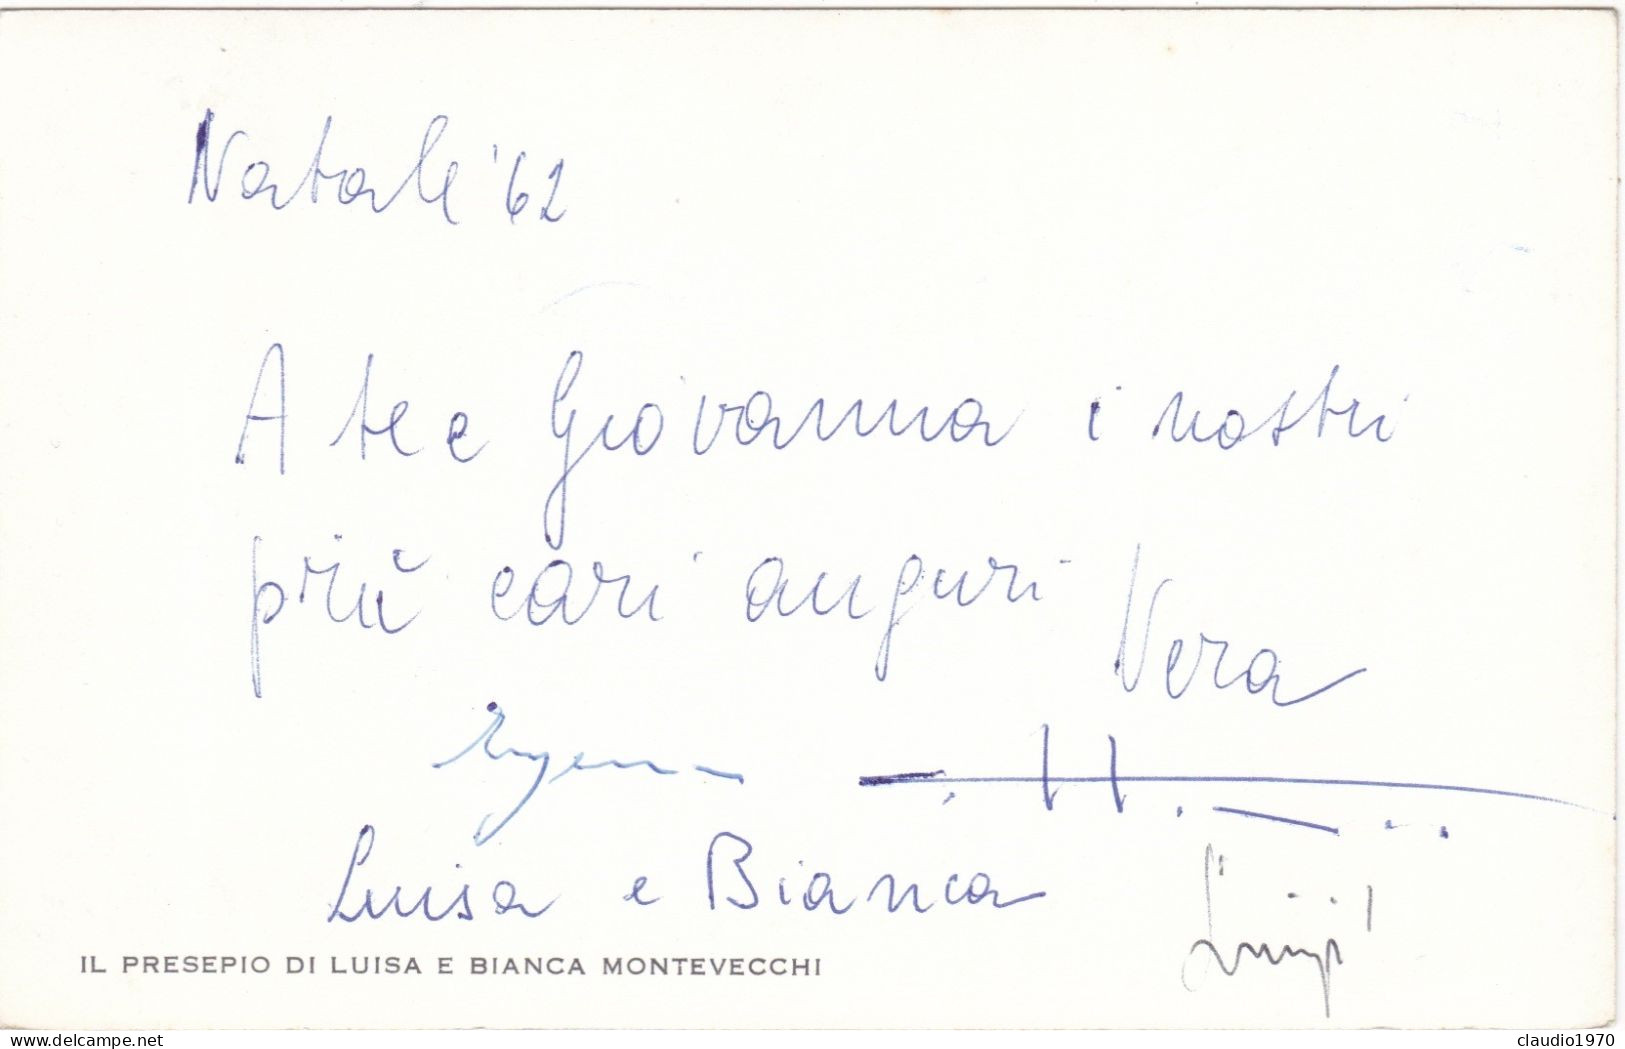 Natale '62
A te e Giovanna i nostri
più cari auguri
Vera
Luisa e Bianca
Luigi
IL PRESEPIO DI LUISA E BIANCA MONTEVECCHI
delcampe.net
claudio1970